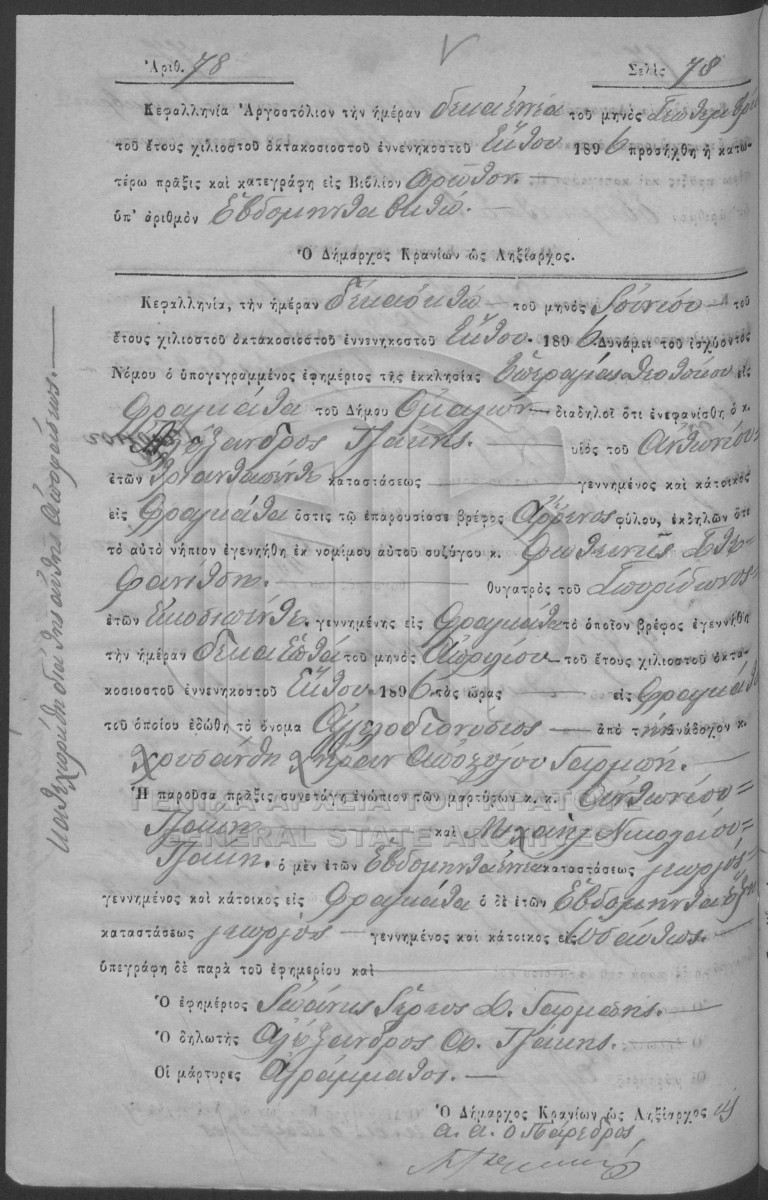 Ἀριθ. 78 Σελὶς 78
Κεφαλληνία Ἀργοστόλιον τὴν ἡμέραν δεκαεννέα τοῦ μηνὸς Σεπτεμβρίου
τοῦ ἔτους χιλιοστοῦ ὀκτακοσιοστοῦ ἐννενηκοστοῦ ἕκτου 1896 προσήχθη ἡ κατω-
τέρω πρᾶξις καὶ κατεγράφη εἰς Βιβλίον πρῶτον.
ὑπ' ἀριθμὸν Ἑβδομῆντα οκτώ.
Ὁ Δήμαρχος Κρανίων ὡς Ληξίαρχος.
Κεφαλληνία, τὴν ἡμέραν δέκα ὀκτώ τοῦ μηνὸς Ἰουνίου τοῦ
ἔτους χιλιοστοῦ ὀκτακοσιοστοῦ ἐννενηκοστοῦ ἕκτου 1896 Δυνάμει τοῦ ἰσχύοντος
Νόμου ὁ ὑπογεγραμμένος ἐφημέριος τῆς ἐκκλησίας Ὑπεραγίας Θεοτόκου εἰς
Φραγκάτα τοῦ Δήμου Ομαλῶν διαδηλοῖ ὅτι ἐνεφανίσθη ὁ κ.
Αλέξανδρος Τζάκης. υἱὸς τοῦ Αντωνίου
ἐτῶν τριανταπέντε καταστάσεως γεννημένος καὶ κάτοικος
εἰς Φραγκάτα ὅστις τῷ ἐπαρουσίασε βρέφος ἄρρενος φύλου, ἐκδηλῶν ὅτι
τὸ αὐτὸ νήπιον ἐγενήθη ἐκ νομίμου αὐτοῦ συζύγου κ. Φωτεινῆς Στε-
φανίτση. θυγατρὸς τοῦ Σπυρίδωνος
ἐτῶν Εικοσιπέντε. γεννημένης εἰς Φραγκάτα τὸ ὁποῖον βρέφος ἐγεννήθη
τὴν ἡμέραν δεκαεπτά τοῦ μηνὸς Απριλίου τοῦ ἔτους χιλιοστοῦ ὀκτα-
κοσιοστοῦ ἐννενηκοστοῦ ἕκτου 1896 τὸς ὥρας εἰς Φραγκάτα
τοῦ ὁποίου ἐδώθη τὸ ὄνομα Αγγελοδιονύσιος ἀπὸ τὴν ἀνάδοχον κ.
χρυσάνθη χήραν Αποστόλου Γαρμπή.
Ἡ παροῦσα πρᾶξις συνετάγη ἐνώπιον τῶν μαρτύρων κ. κ. Αντωνίου
Τζάκη καὶ Μιχαὴλ Νικολάου
Τζάκη. ὁ μὲν ἐτῶν Ἑβδομῆντα ἐννέα καταστάσεως γεωργός
γεννημένος καὶ κάτοικος εἰς Φραγκάτα ὁ δὲ ἐτῶν Ἑβδομῆντα ἕξη
καταστάσεως γεωργός γεννημένος καὶ κάτοικος εἰς ὡσαύτως.
ὑπεγράφη δὲ παρὰ τοῦ ἐφημερίου καὶ
Ὁ ἐφημέριος Ἰωάννης Ἱερεὺς Γαρμπής.
Ὁ δηλωτὴς Αλέξανδρος Α. Τζάκης.
Οἱ μάρτυρες Αγράμματοι.
Ὁ Δήμαρχος Κρανίων ὡς Ληξίαρχος
α. α. ο Πάρεδρος
κατεχωρήθη διὰ της αποφάσεως.
ΓΕΝΙΚΑ ΑΡΧΕΙΑ ΤΟΥ ΚΡΑΤΟΥΣ
GENERAL STATE ARCHIVES